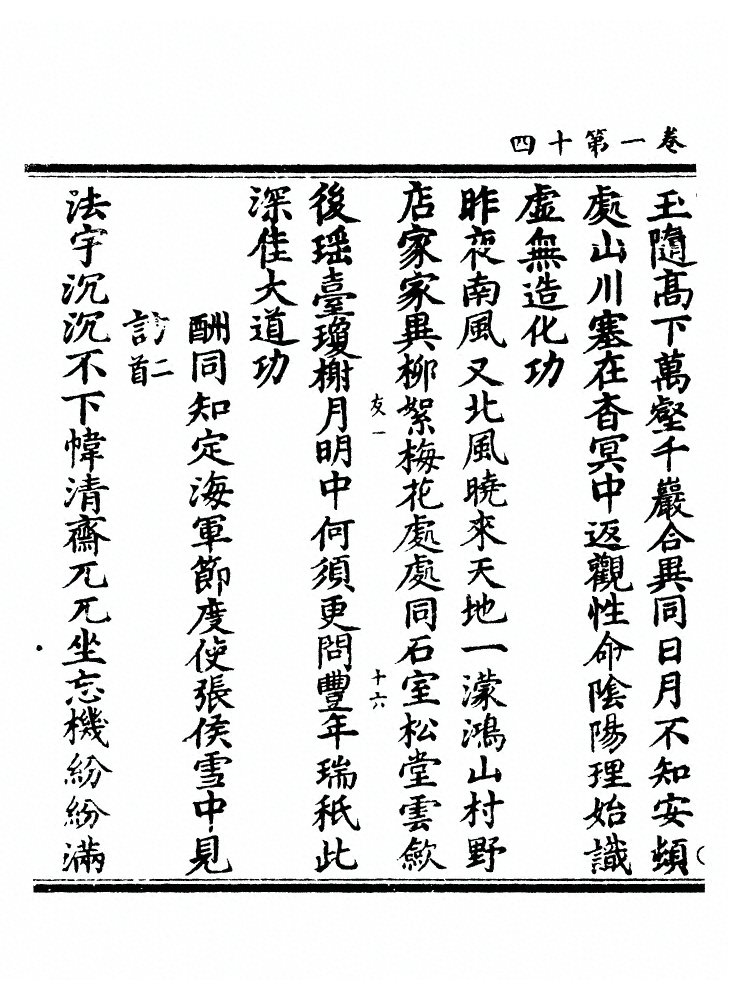 卷一第十四
玉隨高下萬壑千巖合異同日月不知安頓
處山川塞在杳冥中返觀性命陰陽理始識
虛無造化功
昨夜南風又北風曉來天地一濛鴻山村野
店家家異柳絮梅花處處同石室松堂雲歛
友一
十六
後瑶臺瓊榭月明中何須更問豐年瑞秖此
深佳大道功
酬同知定海軍節度使張侯雪中見
訪二首
法宇沉沉不下幃清齋兀兀坐忘機紛紛滿